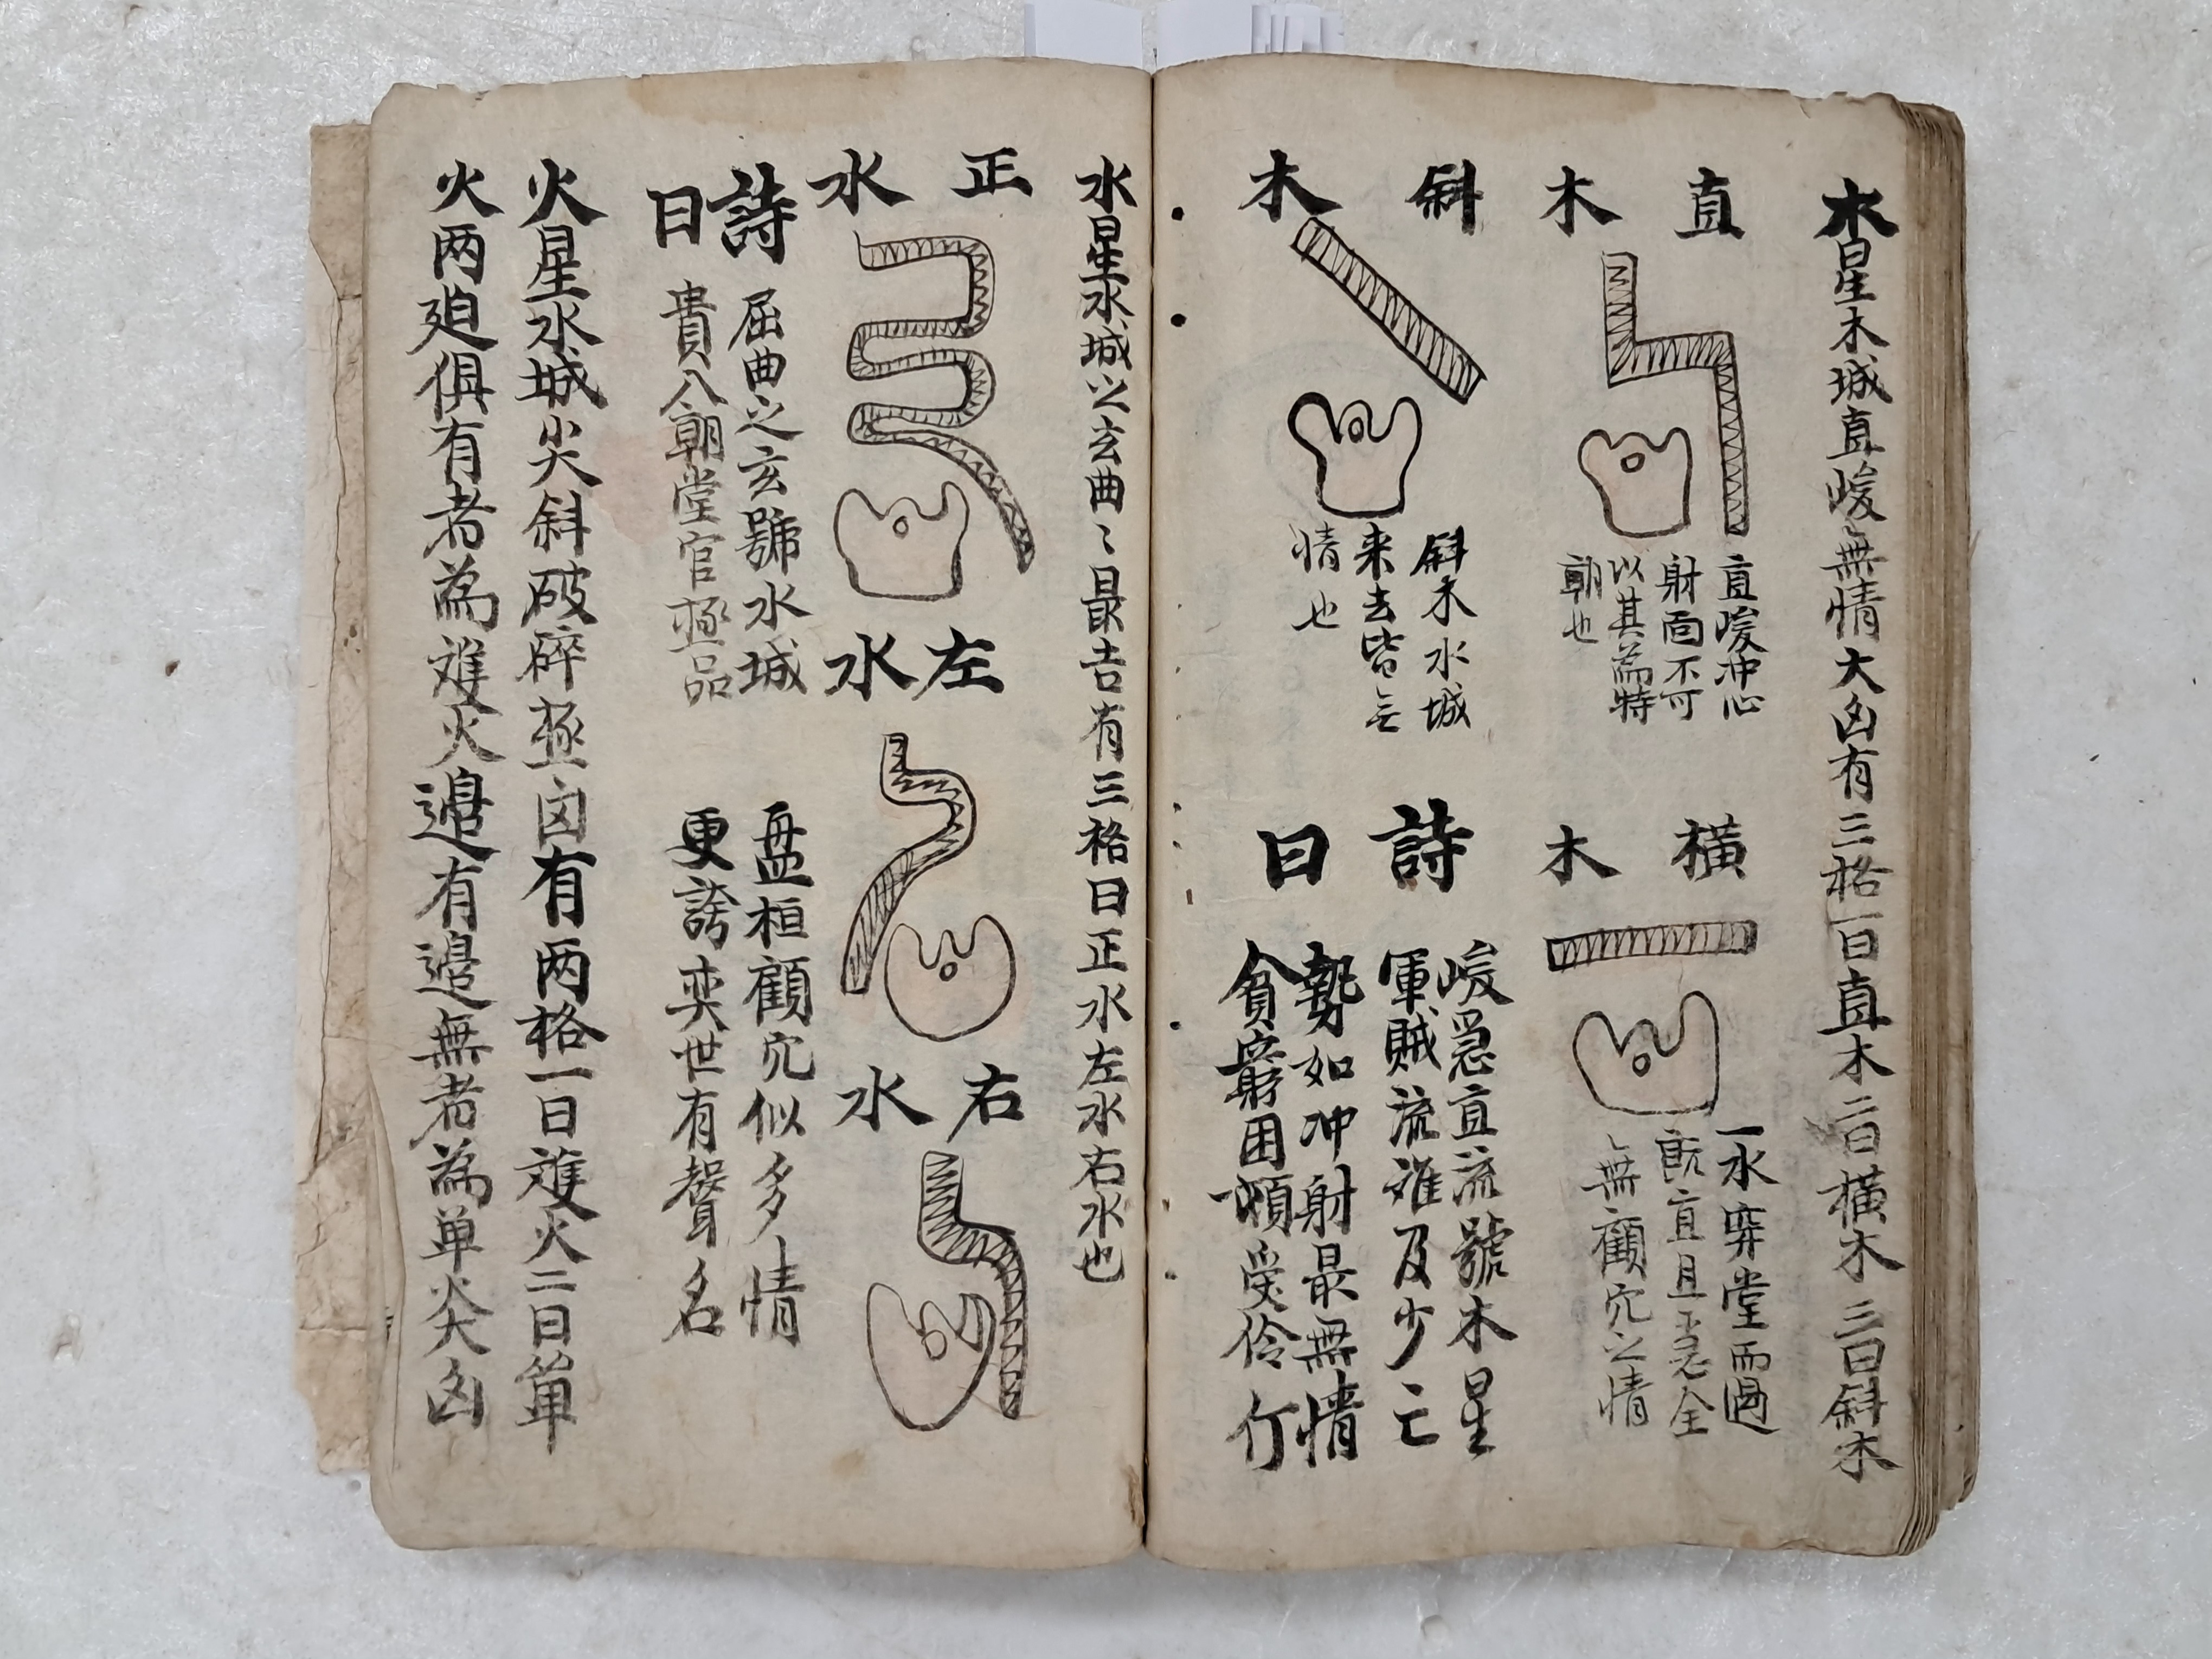 木星木城直峻〻無情大凶有三格一曰直木二曰橫木三曰斜木
直木
直峻冲心
射面不可
以其為特
朝也
橫木
一水穿堂而過
既直且急全
無顧穴之情
斜木
斜木水城
来去皆无
情也
詩曰
峻急直流號木星
軍賊流離及少亡
勢如冲射最無情
貧窮困頓受伶仃
水星水城之玄曲〻最吉有三格曰正水左水右水也
正水
左水
右水
詩曰
屈曲之玄號水城
盘桓顧穴似多情
貴入朝堂官極品
更誇奕世有聲名
火星水城尖斜破碎極凶有两格一曰雙火二曰单
火两廹俱有者為雙火邉有邉無者為单炎凶